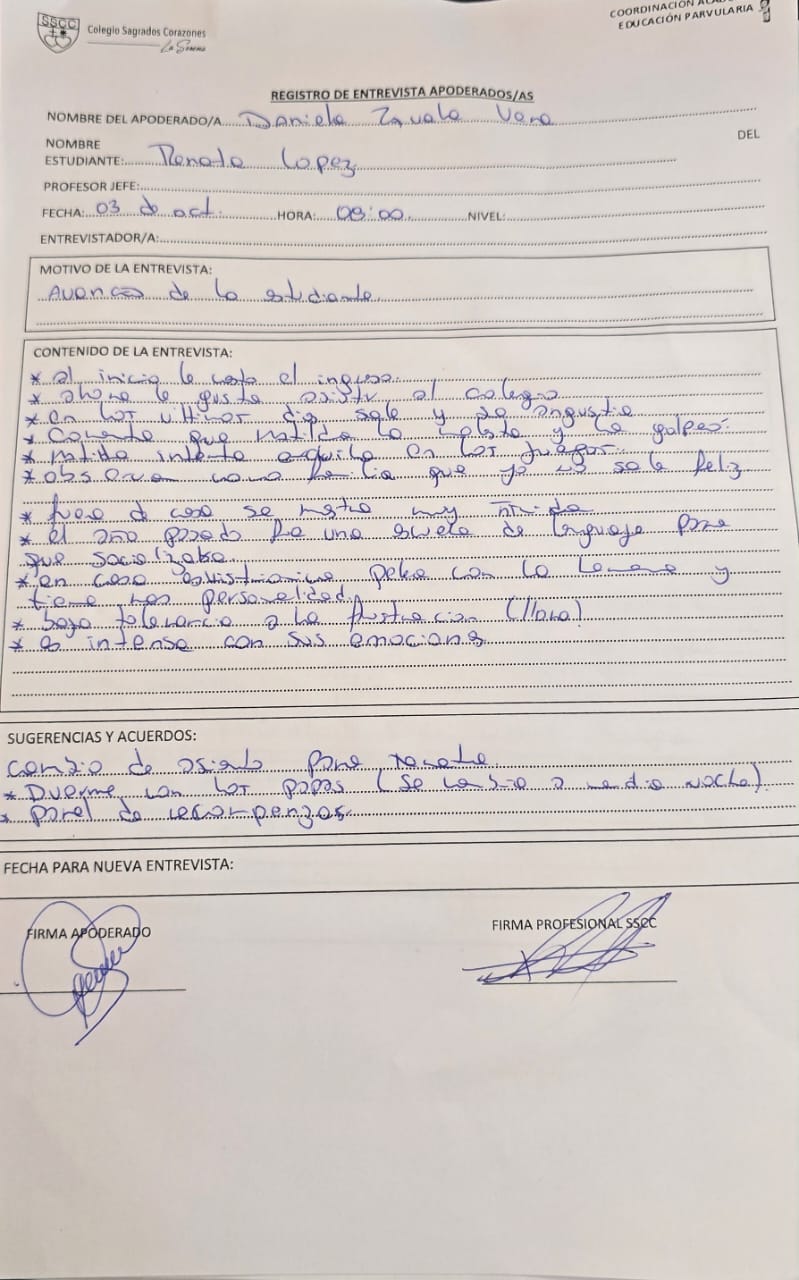 SSCC
Colegio Sagrados Corazones
La Serena
COORDINACIÓN ACAD
EDUCACIÓN PARVULARIA
REGISTRO DE ENTREVISTA APODERADOS/AS
NOMBRE DEL APODERADO/A Daniela Zavala Vera
NOMBRE DEL
ESTUDIANTE: Renata Lopez
PROFESOR JEFE:
FECHA: 03 de oct. HORA: 08:00 NIVEL:
ENTREVISTADOR/A:
MOTIVO DE LA ENTREVISTA:
Avances de la estudiante
CONTENIDO DE LA ENTREVISTA:
* al inicio le costo el ingreso.
* ahora le gusta asistir al colegio
* en los ultimos dias sale y se angustia
* Comenta que Matilda la molesta y la golpeo.
* Matilda intenta en los juegos.
* observan como familia que ya no sale feliz
* fuera de casa se muestra muy timida
* el año pasado fue una escuela de lenguaje para
que socializaba
* en casa pelea con la hermana y
tiene mas personalidad.
* baja tolerancia a la frustracion (llora)
* es intensa con sus emociones
SUGERENCIAS Y ACUERDOS:
Cambio de asiento para renata
* Duerme con los papas (se cambio a media noche)
* panel de recompenzas.
FECHA PARA NUEVA ENTREVISTA:
FIRMA APODERADO
FIRMA PROFESIONAL SSCC